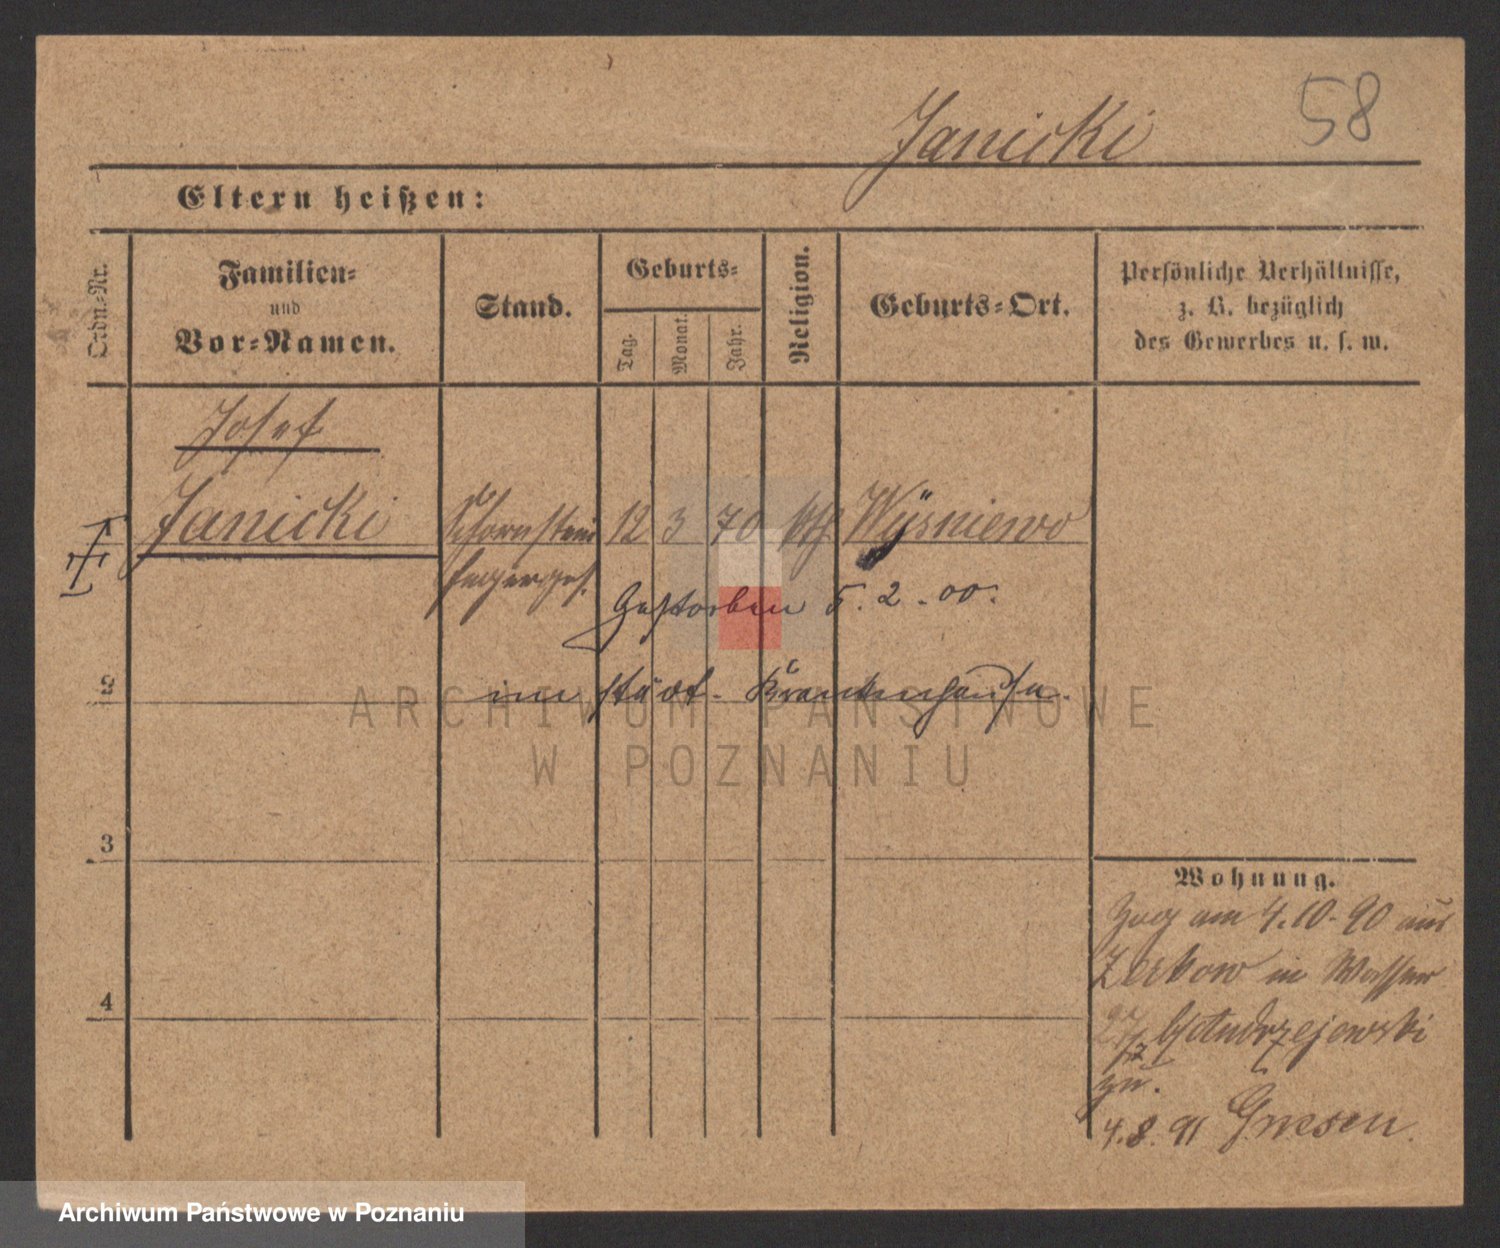 58
Janicki
Eltern heißen:
Ordn.-Nr.
Familien-
und
Vor-Namen.
Stand.
Geburts-
Tag.
Monat.
Jahr.
Religion.
Geburts-Ort.
Persönliche Verhältnisse,
z. B. bezüglich
des Gewerbes u. s. w.
Josef
Janicki
Schornstein
fegerges.
12 3 70 kth Wÿsniewo
Gestorben 5. 2. 00.
2
im städt. Krankenhause.
ARCHIWUM PAŃSTWOWE
W POZNANIU
3
Wohnung.
Zog am 4.10.90 aus
Zerkow in Wasser
27/7 b/ Andrzejewski
zu.
4
4.8.91 Gnesen.
Archiwum Państwowe w Poznaniu